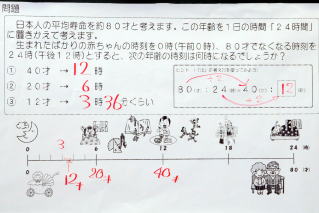 問題
日本人の平均寿命を約80才と考えます。この年齢を1日の時間「24時間」
に置きかえて考えます。
生まれたばかりの赤ちゃんの時刻を0時(午前0時)、80才でなくなる時刻を
24時(午後12時)とすると、次の年齢の時刻は何時になるでしょうか?
① 40才 → 12時
② 20才 → 6時
③ 12才 → 3時36分くらい
80(才):24(時)=40(才):12(時)
3
0 6 12 18 24 (時)
0 80 (才)
12才 20才 40才